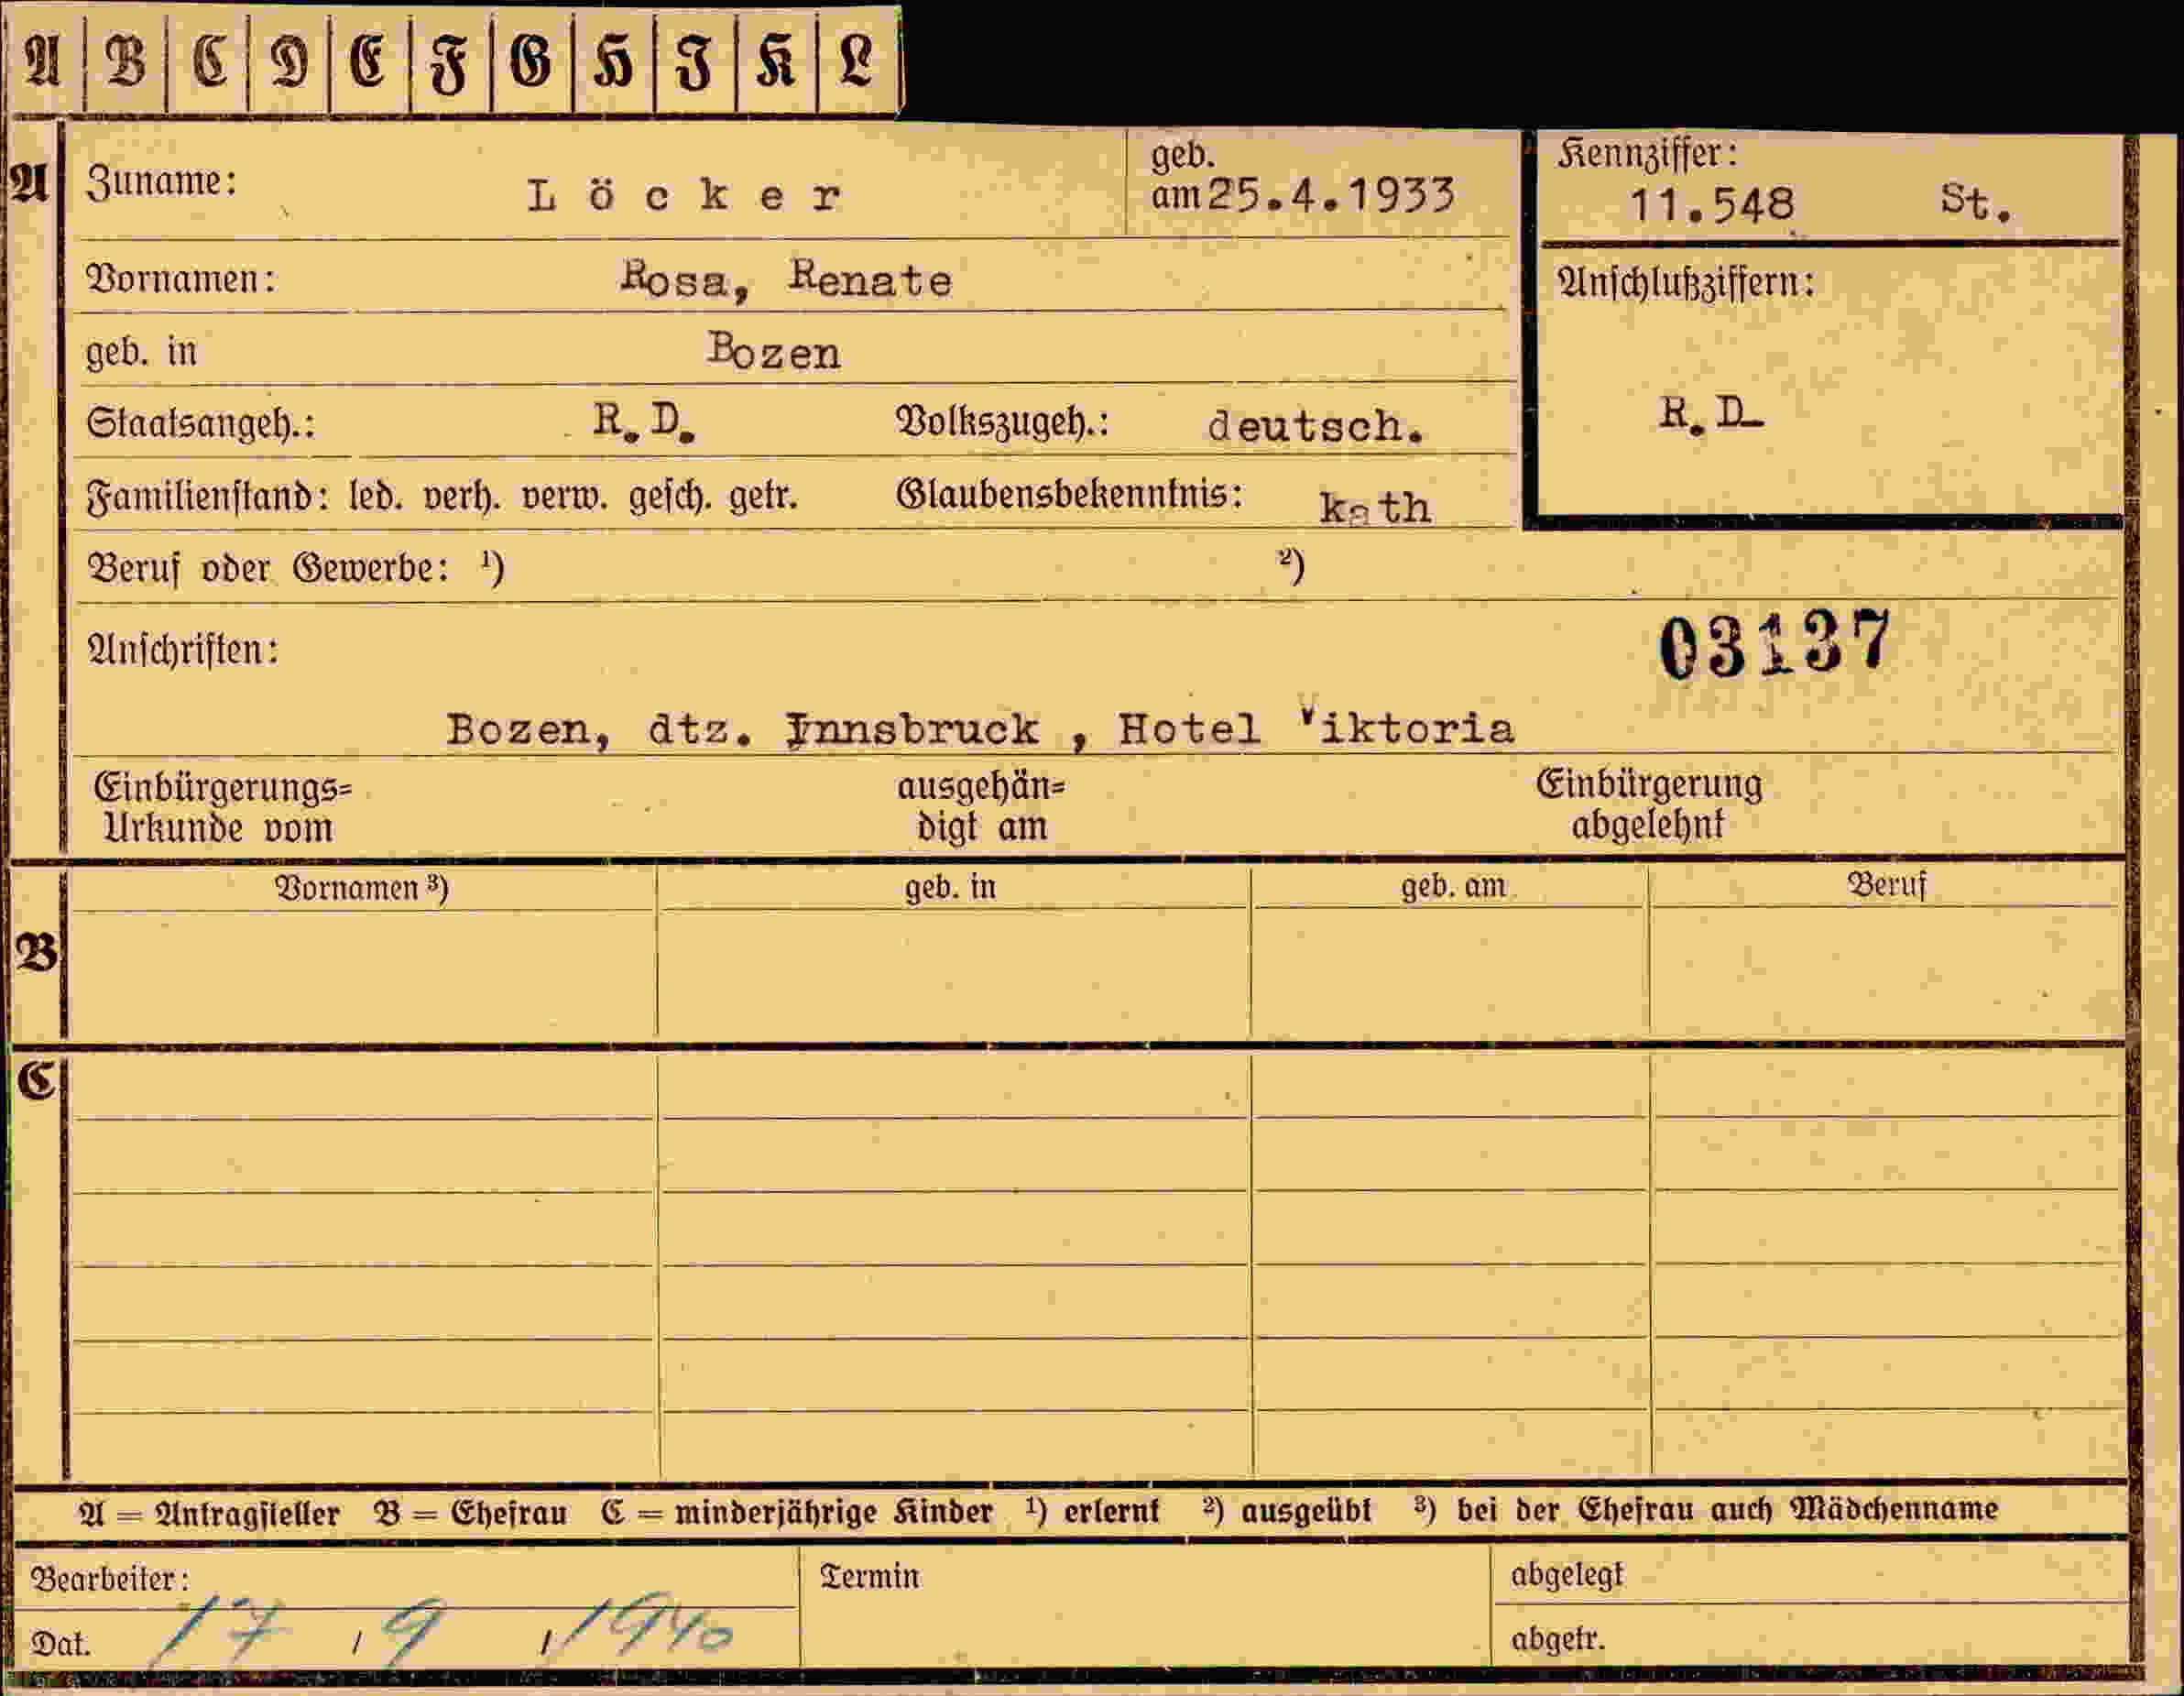 A B C D E F G H I K L
A Zuname: Löcker geb. am 25.4.1933 Kennziffer: 11.548 St.
Vornamen: Rosa, Renate Anschlußziffern:
geb. in Bozen
Staatsangeh.: R.D. Volkszugeh.: deutsch. R.D.
Familienstand: led. verh. verw. gesch. getr. Glaubensbekenntnis: kath
Beruf oder Gewerbe: ¹) ²)
Anschriften: 03137
Bozen, dtz. Innsbruck , Hotel Viktoria
Einbürgerungs= ausgehän= Einbürgerung
Urkunde vom digt am abgelehnt
Vornamen ³) geb. in geb. am Beruf
B
C
A = Antragsteller B = Ehefrau C = minderjährige Kinder ¹) erlernt ²) ausgeübt ³) bei der Ehefrau auch Mädchenname
Bearbeiter: Termin abgelegt
Dat. 17 / 9 / 1940 abgetr.